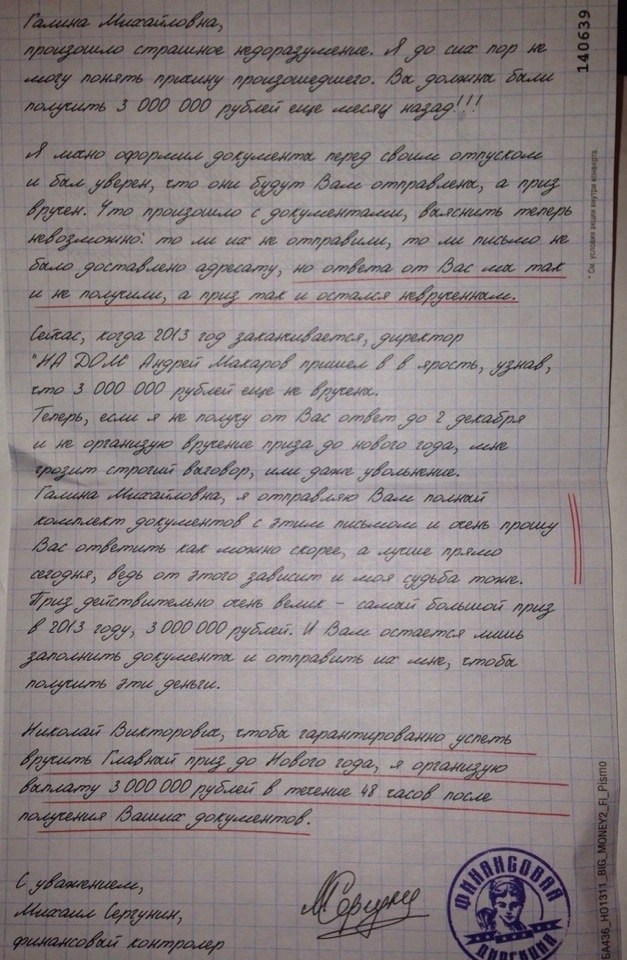 Галина Михайловна,
произошло страшное недоразумение. Я до сих пор не
могу понять причину произошедшего. Вы должны были
получить 3 000 000 рублей еще месяц назад!!!
Я лично оформил документы перед своим отпуском
и был уверен, что они будут Вам отправлены, а приз
вручен. Что произошло с документами, выяснить теперь
невозможно: то ли их не отправили, то ли письмо не
было доставлено адресату, но ответа от Вас мы так
и не получили, а приз так и остался неврученным.
Сейчас, когда 2013 год заканчивается, директор
"НА ДОМ" Андрей Макаров пришел в в ярость, узнав,
что 3 000 000 рублей еще не вручены.
Теперь, если я не получу от Вас ответ до 2 декабря
и не организую вручение приза до нового года, мне
грозит строгий выговор, или даже увольнение.
Галина Михайловна, я отправляю Вам полный
комплект документов с этим письмом и очень прошу
Вас ответить как можно скорее, а лучше прямо
сегодня, ведь от этого зависит и моя судьба тоже.
Приз действительно очень велик – самый большой приз
в 2013 году, 3 000 000 рублей. И Вам остается лишь
заполнить документы и отправить их мне, чтобы
получить эти деньги.
Николай Викторович, чтобы гарантированно успеть
вручить Главный приз до Нового года, я организую
выплату 3 000 000 рублей в течение 48 часов после
получения Ваших документов.
С уважением,
Михаил Сергунин,
финансовый контролер
ФИНАНСОВАЯ
ДИРЕКЦИЯ
140639
* См. условия акции внутри конверта.
БА436_НО1311_BIG_MONEY2_FI_Pismo